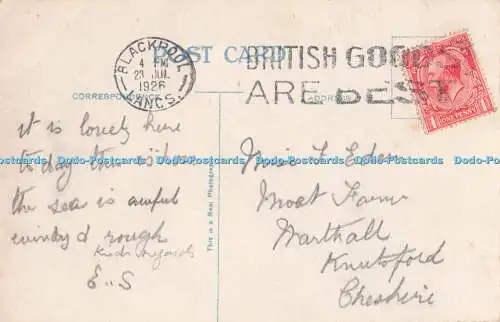 POST CARD
BLACKPOOL
4 PM
23 JUL
1926
LANCS.
BRITISH GOODS
ARE BEST
ONE PENNY
CORRESPONDENCE
ADDRESS
it is lovely here
to day tho
the sea is awful
windy & rough
Kind Regards
E.S
This is a Real Photograph
Miss L Eden
Moat Farm
Marthall
Knutsford
Cheshire
Dodo-Postcards Dodo-Postcards Dodo-Postcards Dodo-Postcards Dodo-Postcards